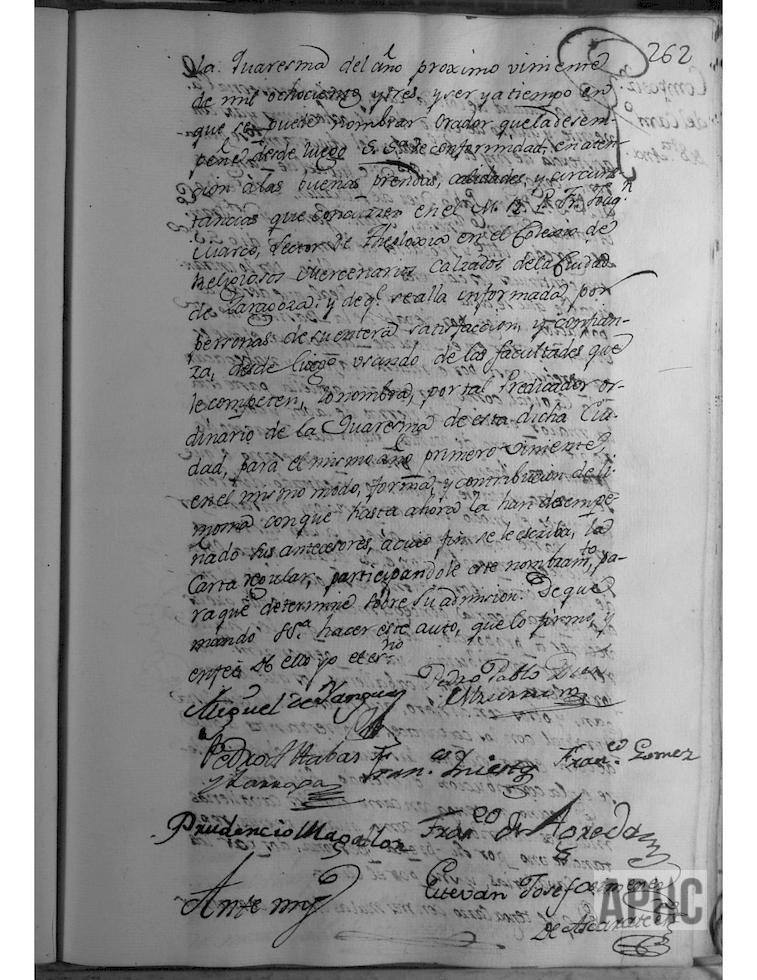 262
la Quaresma del año proximo viniente
de mil ochocientos y tres, y ser ya tiempo en
que se puede nombrar Orador que la desem-
peñe desde luego S. Sª de conformidad, en aten-
cion à las buenas prendas, calidades, y circuns-
tancias que concurren en el M. R. P. Fr. Joaqn
Marco, Lector de Theoloxia en el Colexio de
Religiosos Mercenarios Calzados de la Ciudad
de Zaragoza; y de qe se alla informada, por
personas de su entera satisfaccion, y confian-
za, desde luego usando de las facultades que
le competen, lo nombra, por tal Predicador or-
dinario de la Quaresma de esta dicha Ciu-
dad, para el mismo año primero viniente,
en el mismo modo, forma, y contribucion de li-
mosna con que hasta ahora la han desempe-
ñado sus antecesores, a cuio fin se le escriba, la
Carta regular, participandole este nombramto, pa-
ra que determine sobre su admision: De que
mando SSª hacer este auto, que lo firmó, y
en feé de ello yo el esno
Miguel de Yanguas Pedro Pablo
Pedro Franco Franco Gomez
Prudencio Magallon Franco de Agreda
Ante mi Estevan Josef Ximenez
De Ascarate
APHC